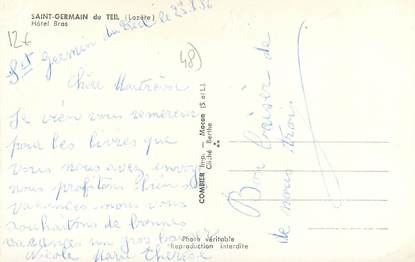 SAINT-GERMAIN du TEIL (Lozère)
Hôtel Bras
12€
48)
St Germain du Teil le 23.8.56
Chère Maîtresse
Je vien vous remercier
pour les livres que
vous nous avez envoyé
nous profitons bien des
vacances nous vous
souhaitons de bonnes
vacances un gros baiser
Nicole Marie Thérèse
COMBIER Imp. - Macon (S. et L.)
Cliché Berthe
Photo véritable
Reproduction interdite
Bon baiser de
de nous trois